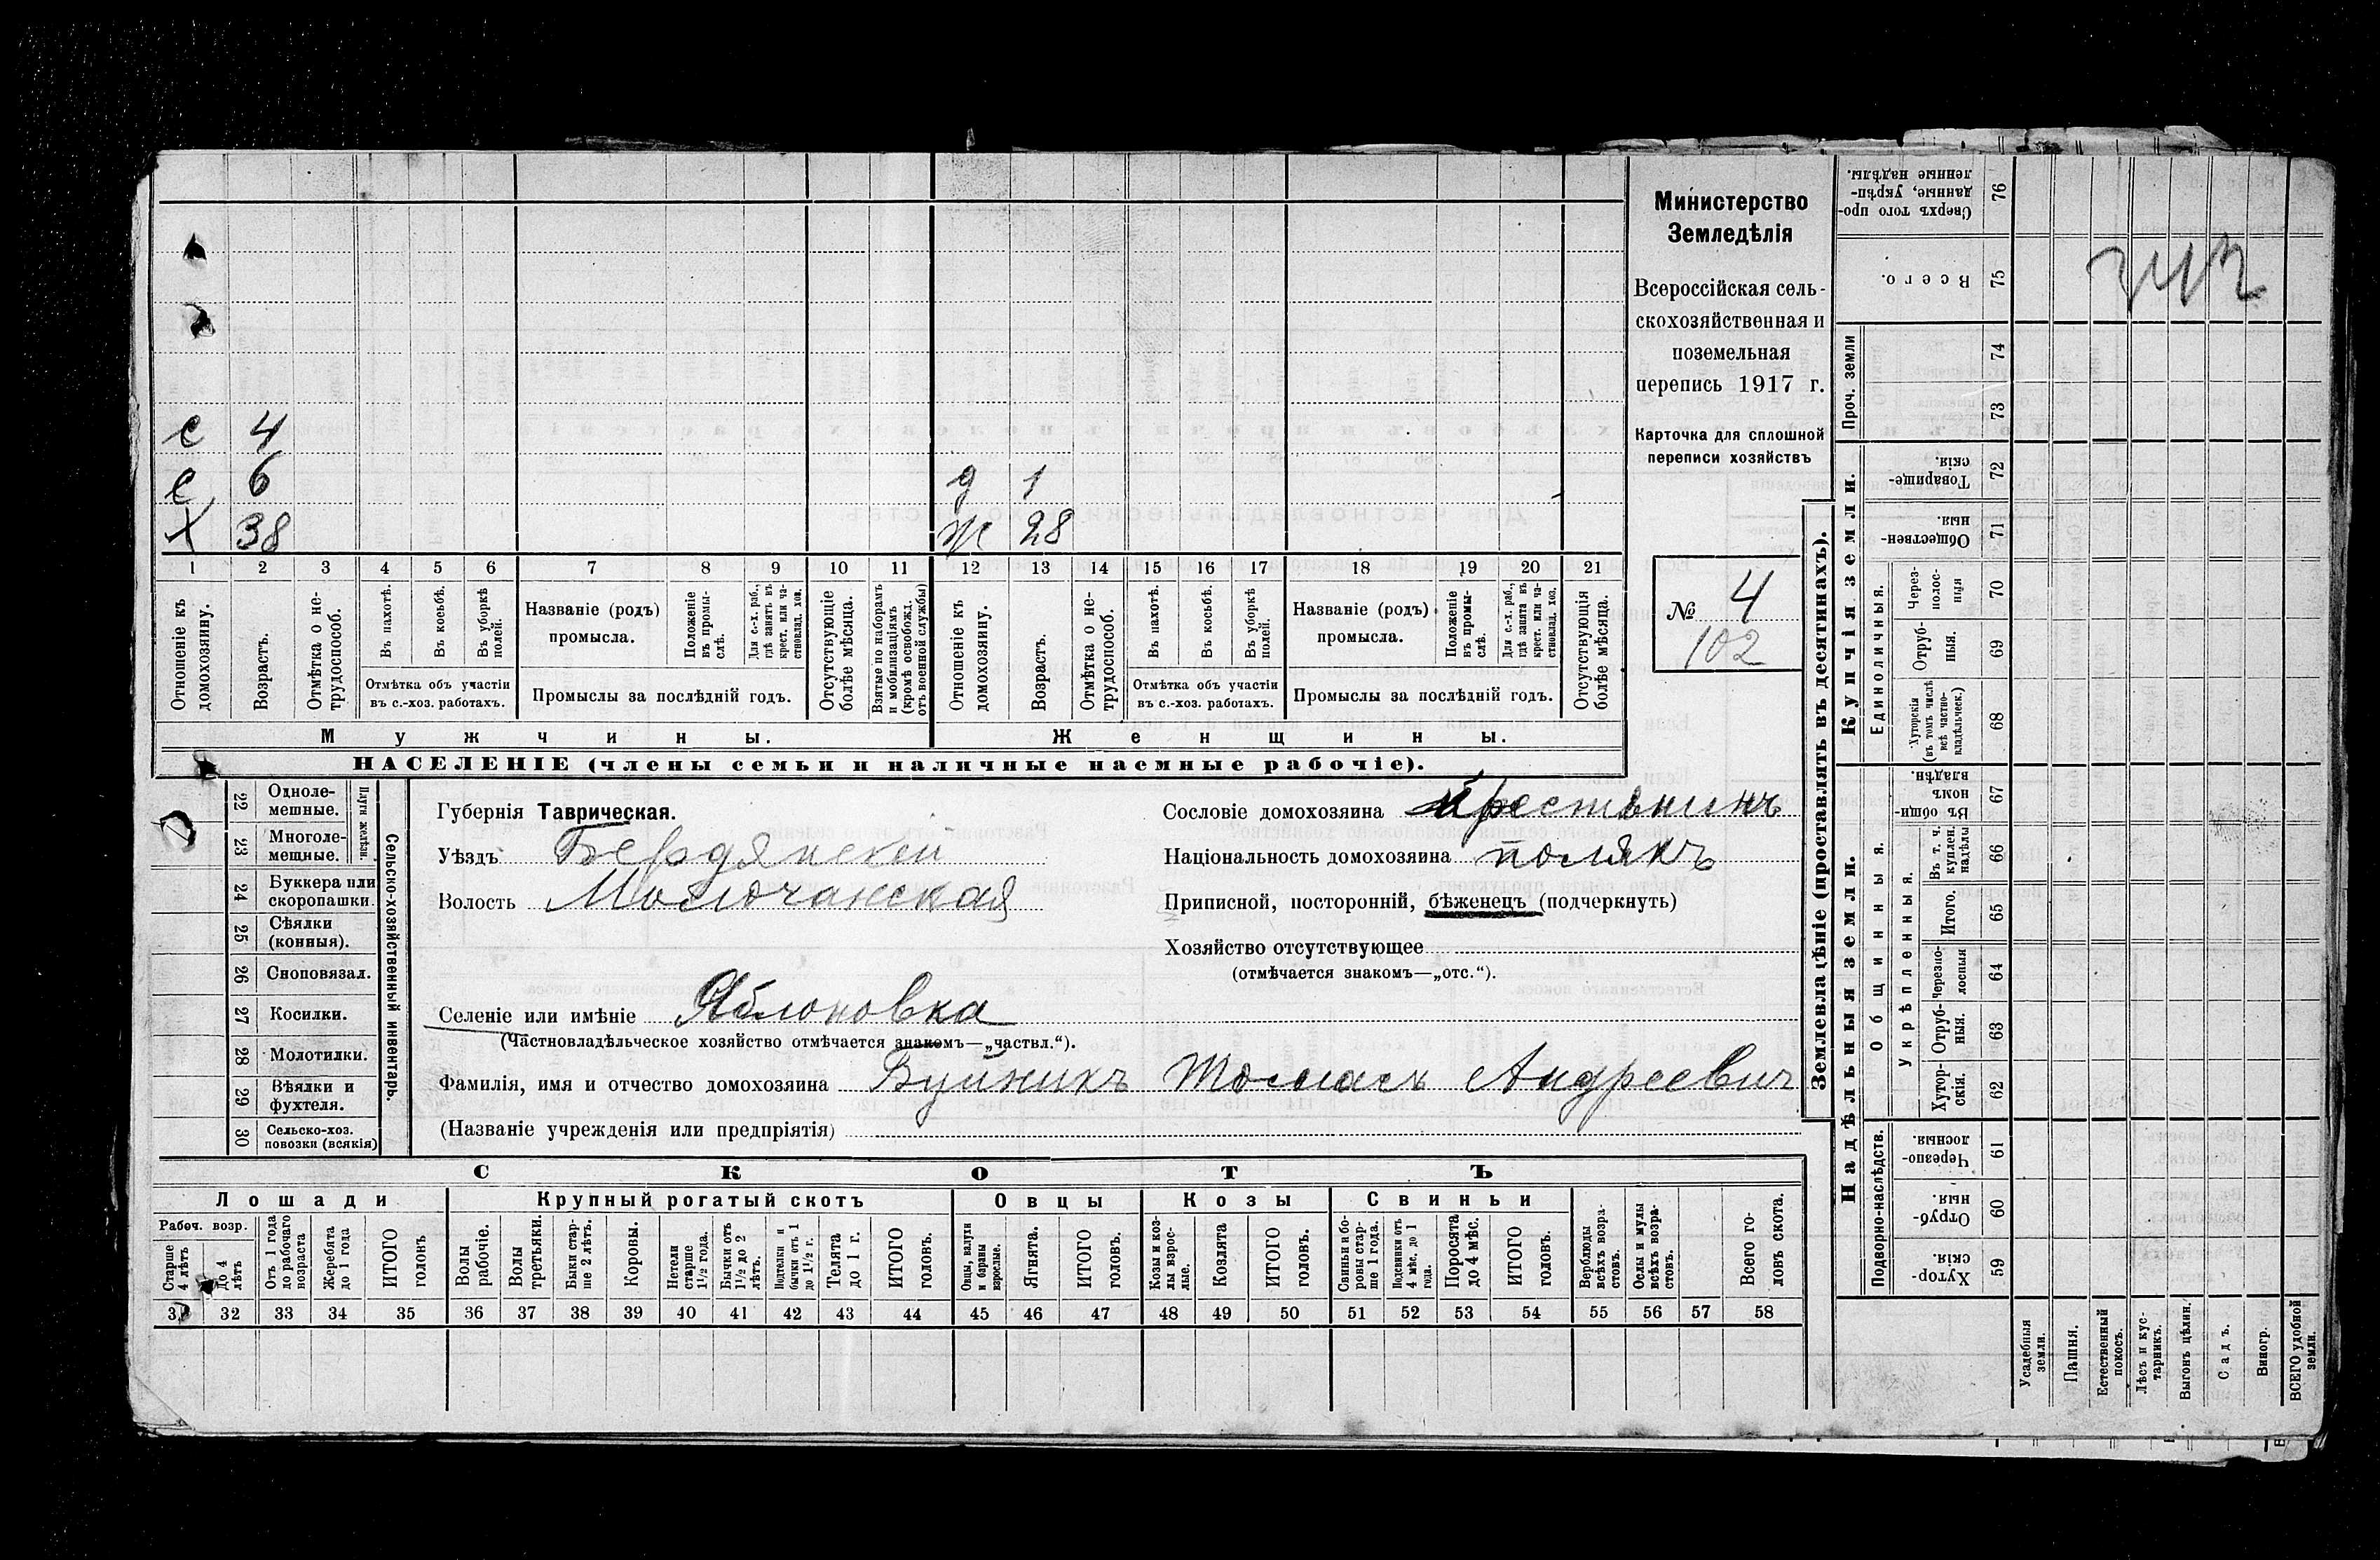 с 4
с 6 д 1
х 38 ж 28
1 2 3 4 5 6 7 8 9 10 11 12 13 14 15 16 17 18 19 20 21
Отношеніе къ домохозяину.
Возрастъ.
Отмѣтка о не-
трудоспособ.
Въ пахотѣ.
Въ косьбѣ.
Въ уборкѣ
полей.
Отмѣтка объ участіи
въ с.-хоз. работахъ.
Названіе (родъ)
промысла.
Положеніе
въ промы-
слѣ.
Для с.-х. раб.,
гдѣ занятъ въ
крест. или ча-
стновлад. хоз.
Промыслы за послѣдній годъ.
Отсутствующіе
болѣе мѣсяца.
Взятые по наборамъ
и мобилизаціямъ
(кромѣ освобожд.
отъ военной службы)
Отношеніе къ
домохозяину.
Возрастъ.
Отмѣтка о не-
трудоспособ.
Въ пахотѣ.
Въ косьбѣ.
Въ уборкѣ
полей.
Отмѣтка объ участіи
въ с.-хоз. работахъ.
Названіе (родъ)
промысла.
Положеніе
въ промы-
слѣ.
Для с.-х. раб.,
гдѣ занята въ
крест. или ча-
стновлад. хоз.
Промыслы за послѣдній годъ.
Отсутствующія
болѣе мѣсяца.
Мужчины. Женщины.
НАСЕЛЕНІЕ (члены семьи и наличные наемные рабочіе).
Министерство
Земледѣлія
Всероссійская сель-
скохозяйственная и
поземельная
перепись 1917 г.
Карточка для сплошной
переписи хозяйствъ
№ 4
102
22 Одноле-
мешные.
23 Многоле-
мещные.
Плуги желѣзн.
24 Буккера или
скоропашки.
25 Сѣялки
(конныя).
26 Сноповязал.
27 Косилки.
28 Молотилки.
29 Вѣялки и
фухтеля.
30 Сельско-хоз.
повозки (всякія)
Сельско-хозяйственный инвентарь.
Губернія Таврическая.
Уѣздъ Бердянскій
Волость Молочанская
Селеніе или имѣніе Яблоновка
(Частновладѣльческое хозяйство отмѣчается знакомъ—„частвл.“).
Фамилія, имя и отчество домохозяина Буйникъ Томасъ Андреевич
(Названіе учрежденія или предпріятія)
Сословіе домохозяина крестьнинъ
Національность домохозяина полякъ
Приписной, посторонній, бѣженецъ (подчеркнуть)
Хозяйство отсутствующее
(отмѣчается знакомъ—„отс.“).
СКОТЪ
Лошади Крупный рогатый скотъ Овцы Козы Свиньи
Рабоч. возр.
Старше
4 лѣтъ
до 4
лѣтъ
Отъ 1 года
до рабочаго
возраста
Жеребята
до 1 года
ИТОГО
головъ
Волы
рабочіе.
Волы
третьяки.
Быки стар-
ше 2 лѣтъ.
Коровы.
Нетели
старше
1½ года.
Бычки отъ
1½ до 2
лѣтъ.
Подтелки и
бычки отъ 1
до 1½ г.
Телята
до 1 г.
ИТОГО
головъ.
Овцы, валухи
и бараны
взрослые.
Ягнята.
ИТОГО
головъ.
Козы и коз-
лы взрос-
лые.
Козлята
ИТОГО
головъ.
Свиньи и бо-
ровы стар-
ше 1 года.
Подсвинки отъ
4 мѣс. до 1
года.
Поросята
до 4 мѣс.
ИТОГО
головъ.
Верблюды
всѣхъ возра-
стовъ.
Ослы и мулы
всѣхъ возра-
стовъ.
Всего го-
ловъ скота.
32 33 34 35 36 37 38 39 40 41 42 43 44 45 46 47 48 49 50 51 52 53 54 55 56 57 58
Землевладѣніе (проставлять въ десятинахъ).
Купчія земли.
Надѣльныя земли.
Сверхъ того про-
данные, укрѣп-
ленные надѣлы. 76
Всего. 75
Проч. земли 74
73
Товарище-
скія. 72
Обществен-
ныя. 71
Единоличныя.
Через-
полос-
ныя 70
Отруб-
ныя. 69
Хуторскія
(въ томъ числѣ
всѣ частно-
владѣльческ.) 68
Общинныя.
Въ общи-
номъ
владѣн. 67
Укрѣпленныя.
Въ т. ч.
куплен.
надѣлы 66
Итого. 65
Черезпо-
лосныя 64
Отруб-
ныя. 63
Хутор-
скія. 62
Подворно-наслѣдств.
Черезпо-
лосныя. 61
Отруб-
ныя. 60
Хутор-
скія. 59
Усадебныя
земли.
Пашня.
Естественный
покосъ.
Лѣсъ и кус-
тарникъ.
Выгонъ цѣлин.
Садъ.
Виногр.
ВСЕГО удобной
земли.